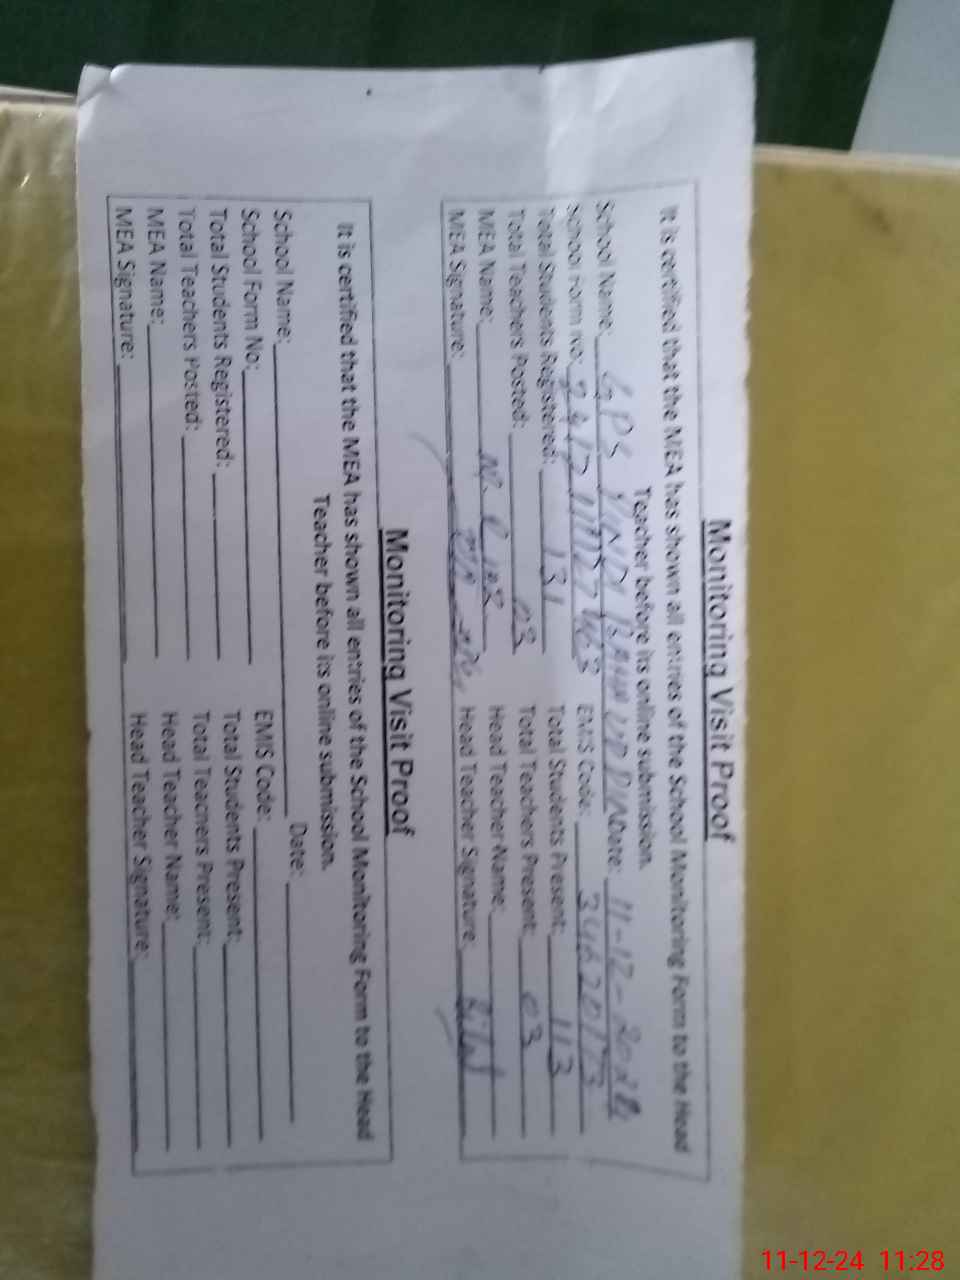 Monitoring Visit Proof
It is certified that the MEA has shown all entries of the School Monitoring Form to the Head
Teacher before its online submission.
School Name: GPS PINDI BAHA UD DIN Date: 11-12-2024
School Form No: EMIS Code: 34620173
Total Students Registered: 131 Total Students Present: 113
Total Teachers Posted: 03 Total Teachers Present: 03
MEA Name: Head Teacher Name:
MEA Signature: Head Teacher Signature:
Monitoring Visit Proof
It is certified that the MEA has shown all entries of the School Monitoring Form to the Head
Teacher before its online submission.
School Name: Date:
School Form No: EMIS Code:
Total Students Registered: Total Students Present:
Total Teachers Posted: Total Teachers Present:
MEA Name: Head Teacher Name:
MEA Signature: Head Teacher Signature:
11-12-24 11:28